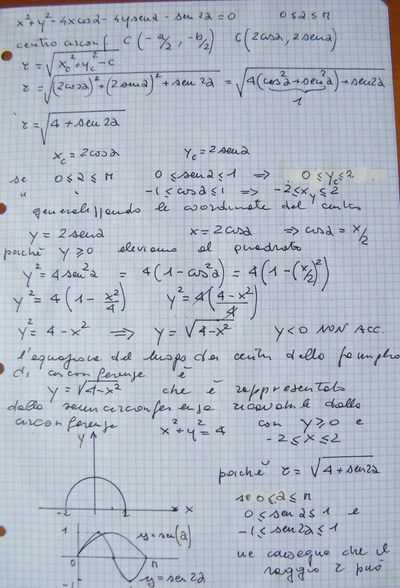 x²+y²-4xcos2-4ysen2-sen22=0 0≤2≤π
centro circonf C(-a/2, -b/2) C(2cos2, 2sen2)
r=√(x_c²+y_c²-c)
r=√((2cos2)²+(2sen2)²+sen22) = √(4(cos²2+sen²2)+sen22)
1
r=√(4+sen22)
x_c=2cos2 y_c=2sen2
se 0≤2≤π 0≤sen2≤1 ⇒ 0≤y_c≤2
" " -1≤cos2≤1 ⇒ -2≤x_y≤2
generalizzando le coordinate del centro
y=2sen2 x=2cos2 ⇒ cos2=x/2
poiché y≥0 eleviamo al quadrato
y²=4sen²2 = 4(1-cos²2)=4(1-(x/2)²)
y²=4(1-x²/4) y²=4((4-x²)/4)
y²=4-x² ⇒ y=√(4-x²) y<0 NON ACC.
l'equazione del luogo dei centri della famiglia
di circonferenze è
y=√(4-x²) che è rappresentato
dalla semicirconferenza ricavabile dalla
circonferenza x²+y²=4 con y≥0 e
-2≤x≤2
y
-2 2 x
poiché r=√(4+sen22)
se 0≤2≤π
0≤sen2≤1 e
-1≤sen22≤1
ne consegue che il
raggio r può
1 y=sen(2)
0 π
-1 y=sen22